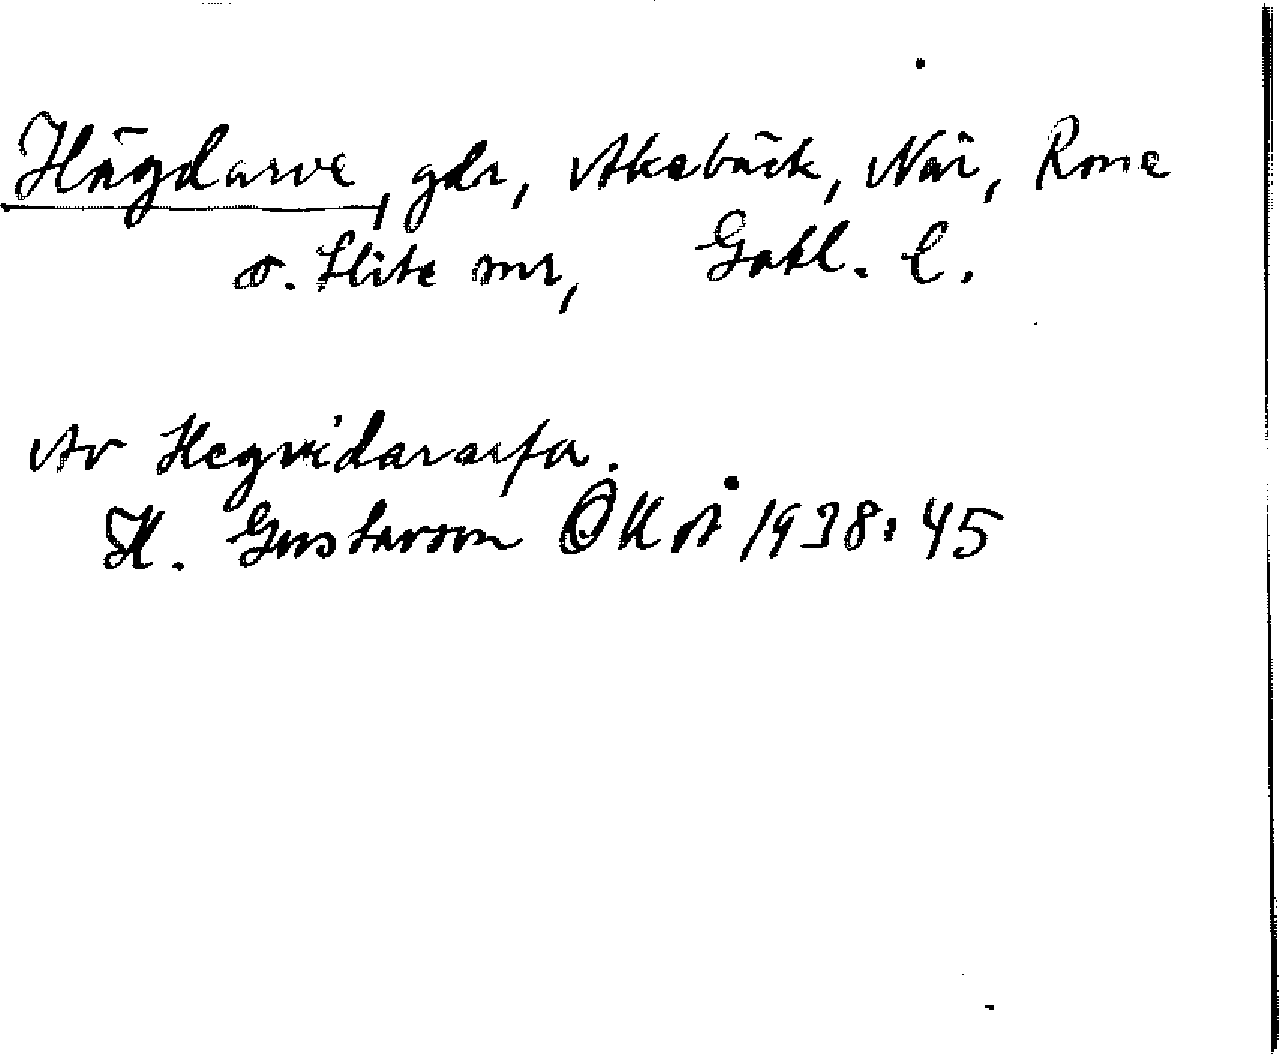 Hägdarve, gdr, Akebäck, När, Rone
o. Slite snr, Gotl. l.
Av Hegvidararfa.
H. Gustavson OKÅ 1938: 45